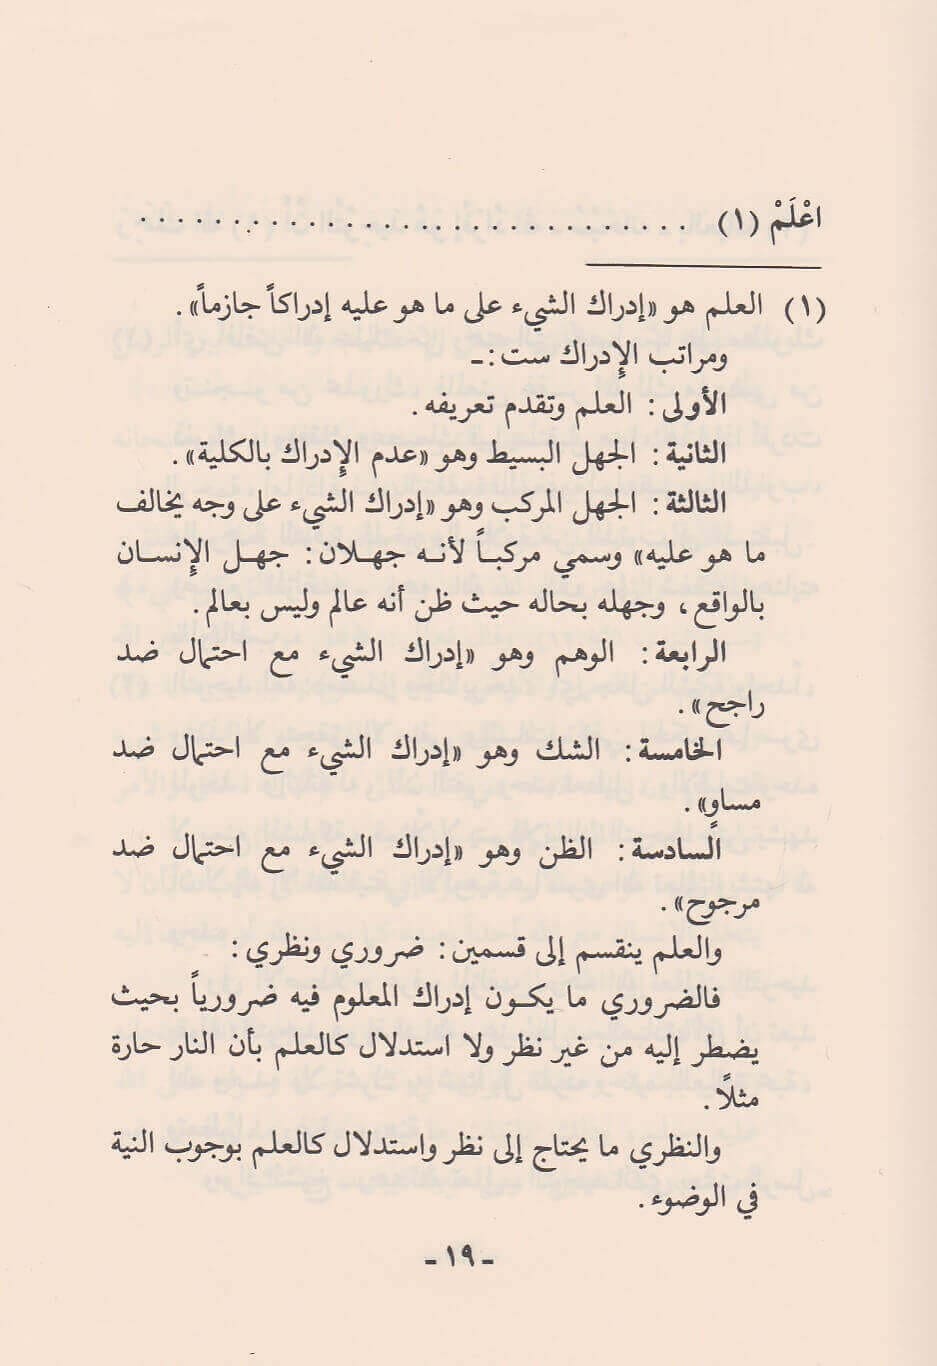 اعْلَمْ (١) . . . . . . . . . . . . . . . . . . . . . . . . . . . . . . . .
(١) العلم هو «إدراك الشيء على ما هو عليه إدراكاً جازماً».
ومراتب الإدراك ست :ـ
الأولى : العلم وتقدم تعريفه .
الثانية : الجهل البسيط وهو «عدم الإدراك بالكلية».
الثالثة : الجهل المركب وهو «إدراك الشيء على وجه يخالف
ما هو عليه» وسمي مركباً لأنه جهلان : جهل الإنسان
بالواقع ، وجهله بحاله حيث ظن أنه عالم وليس بعالم .
الرابعة : الوهم وهو «إدراك الشيء مع احتمال ضد
راجح».
الخامسة : الشك وهو «إدراك الشيء مع احتمال ضد
مساوٍ».
السادسة : الظن وهو «إدراك الشيء مع احتمال ضد
مرجوح».
والعلم ينقسم إلى قسمين : ضروري ونظري :
فالضروري ما يكون إدراك المعلوم فيه ضرورياً بحيث
يضطر إليه من غير نظر ولا استدلال كالعلم بأن النار حارة
مثلاً .
والنظري ما يحتاج إلى نظر واستدلال كالعلم بوجوب النية
في الوضوء .
- ١٩ -